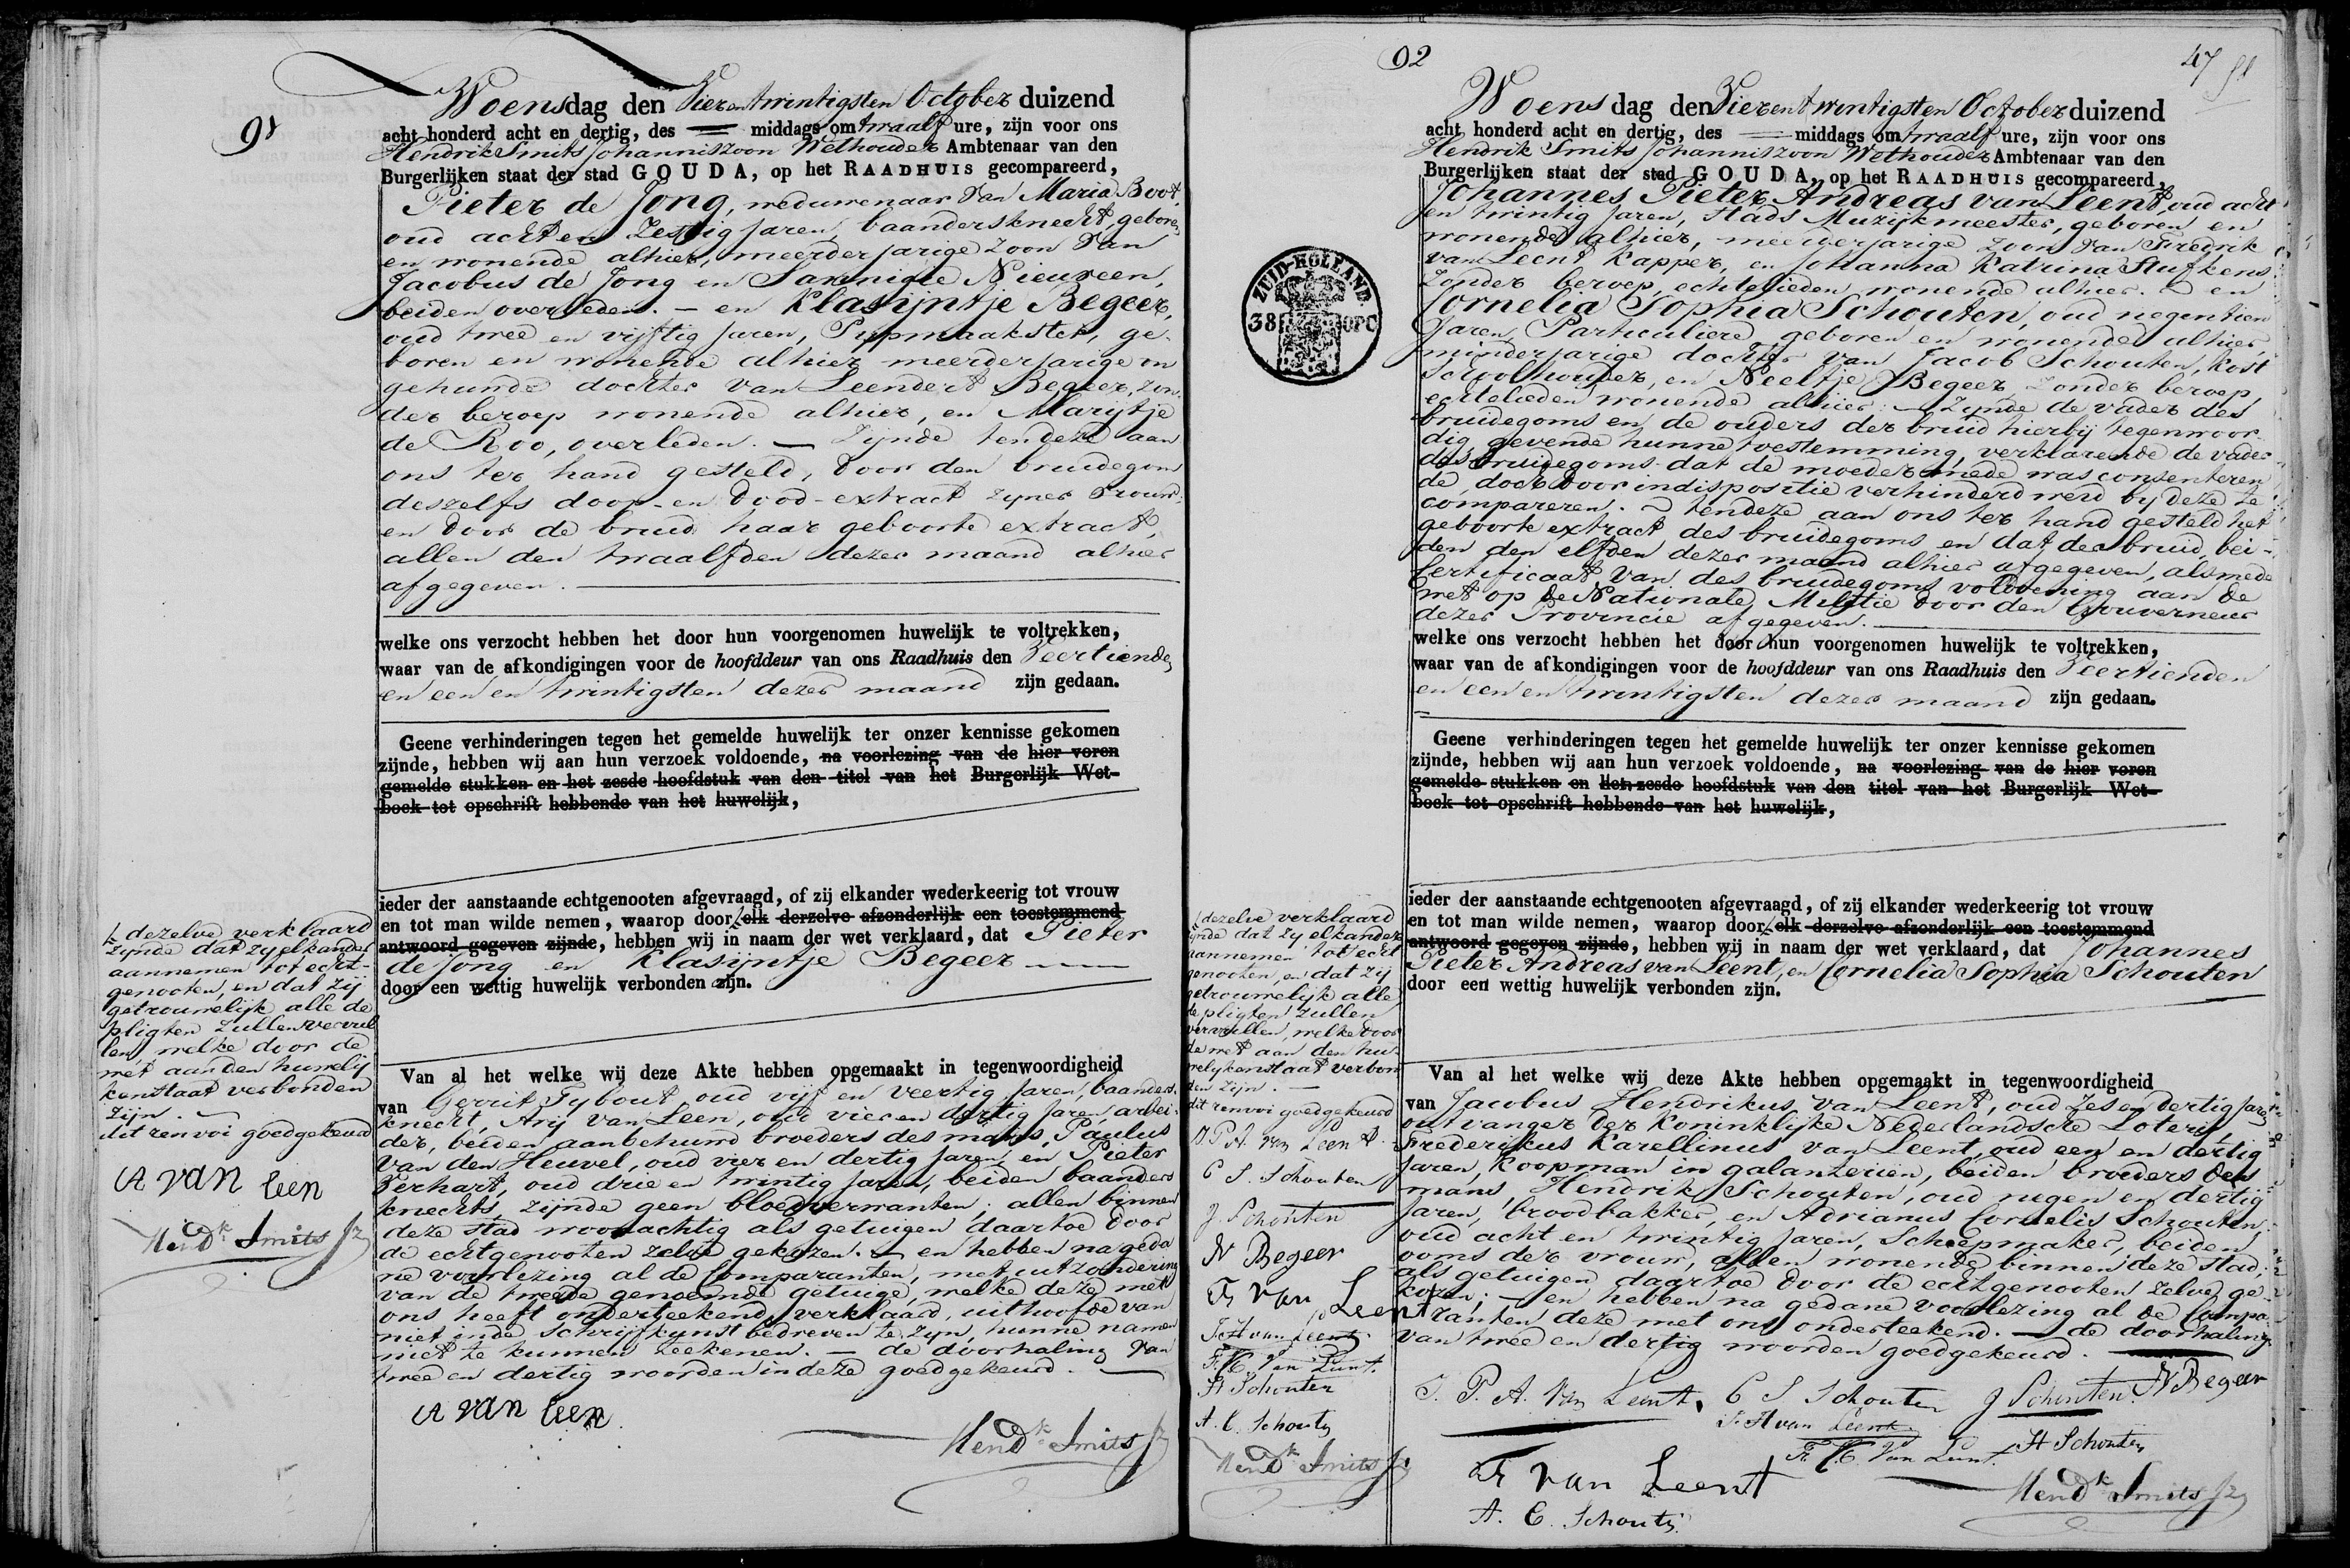 91
Woensdag den Vierentwintigsten October duizend
acht honderd acht en dertig, des middags om twaalf ure, zijn voor ons
Hendrik Smits Johanniszoon Wethouder Ambtenaar van den
Burgerlijken staat der stad GOUDA, op het RAADHUIS gecompareerd,
Pieter de Jong, weduwenaar van Maria Boot,
oud acht en Zestig jaren, baandersknecht, geboren
en wonende alhier, meerderjarige zoon van
Jacobus de Jong en Jannigje Nieuveen,
beiden overleden. — en Klasijntje Begeer,
oud twee en vijftig jaren, Pijpmaakster, ge-
boren en wonende alhier meerderjarige on
gehuwde dochter van Leendert Begeer, zon-
der beroep wonende alhier, en Marijtje
de Roo, overleden. — Zijnde ten deze aan
ons ter hand gesteld, door den bruidegom
deszelfs doop- en dood-extract zyner vrouw-
en door de bruid haar geboorte extract,
allen den twaalfden dezer maand alhier
afgegeven.
welke ons verzocht hebben het door hun voorgenomen huwelijk te voltrekken,
waar van de afkondigingen voor de hoofddeur van ons Raadhuis den Veertienden
en een en twintigsten dezer maand zijn gedaan.
Geene verhinderingen tegen het gemelde huwelijk ter onzer kennisse gekomen
zijnde, hebben wij aan hun verzoek voldoende, na voorlezing van de hier voren
gemelde stukken en het zesde hoofdstuk van den titel van het Burgerlijk Wet-
boek tot opschrift hebbende van het huwelijk,
ieder der aanstaande echtgenooten afgevraagd, of zij elkander wederkeerig tot vrouw
en tot man wilde nemen, waarop door elk derzelve afzonderlijk een toestemmend
antwoord gegeven zijnde, hebben wij in naam der wet verklaard, dat Pieter
de Jong en Klasijntje Begeer
door een wettig huwelijk verbonden zijn.
dezelve verklaard
zijnde dat zy elkander
aannemen tot echt-
genooten, en dat zij
getrouwelijk alle de
pligten zullen vervul
len, welke door de
wet aan den huwelij
kenstaat verbonden
zijn. —
dit renvoi goedgekeurd
A van Leen
Hendk Smits Jz
Van al het welke wij deze Akte hebben opgemaakt in tegenwoordigheid
van Gerrit Tybout oud vijf en veertig Jaren, baanders-
knecht, Arij van Leen, oud vier en dertig jaren arbei-
der, beiden aanbehuwd broeders des mans, Paulus
van den Heuvel, oud vier en dertig jaren, en Pieter
Verhart, oud drie en twintig jaren, beiden baanders
knechts, zijnde geen bloedverwanten; allen binnen
deze stad woonachtig als getuigen daartoe door
de echtgenooten zelve gekozen. — en hebben na geda
ne voorlezing al de Comparanten, met uitzondering
van de tweede genoemde getuige, welke deze met
ons heeft onderteekend, verklaard, uit hoofde van
niet in de schrijfkunst bedreven te zyn, hunne namen
niet te kunnen teekenen. — de doorhaling van
twee en dertig woorden in deze goedgekeurd. —
A van Leen
Hendk Smits Jz
92
47
Woensdag den Vierentwintigsten October duizend
acht honderd acht en dertig, des middags om twaalf ure, zijn voor ons
Hendrik Smits Johanniszoon Wethouder Ambtenaar van den
Burgerlijken staat der stad GOUDA, op het RAADHUIS gecompareerd,
Johannes Pieter Andreas van Leent, oud acht
en twintig jaren, stads Muzijkmeester, geboren en
wonende alhier, meerderjarige zoon van Fredrik
van Leent Kapper, en Johanna Katrina Stufkens
zonder beroep, echtelieden wonende alhier. — en
Cornelia Sophia Schouten, oud negentien
Jaren, Particuliere geboren en wonende alhier,
minderjarige dochter van Jacob Schouten, Kost
Schoolhouder, en Neeltje Begeer zonder beroep,
echtelieden wonende alhier: — Zijnde de vader des
bruidegoms en de ouders der bruid hierbij tegenwoor-
dig, gevende hunne toestemming, verklarende de vader
des bruidegoms dat de moeder mede was consenteren
de, doch door indispositie verhinderd werd by deze te
compareren. — tendeze aan ons ter hand gesteld het
geboorte extract des bruidegoms en dat der bruid, bei-
den den elfden dezer maand alhier afgegeven, alsmede
Certificaat van des bruidegoms voldoening aan de
wet op de Nationale Militie door den Gouverneur
dezer Provincie afgegeven.
ZUID-HOLLAND.
38 OPC
welke ons verzocht hebben het door hun voorgenomen huwelijk te voltrekken,
waar van de afkondigingen voor de hoofddeur van ons Raadhuis den Veertienden
en een en twintigsten dezer maand zijn gedaan.
Geene verhinderingen tegen het gemelde huwelijk ter onzer kennisse gekomen
zijnde, hebben wij aan hun verzoek voldoende, na voorlezing van de hier voren
gemelde stukken en het zesde hoofdstuk van den titel van het Burgerlijk Wet-
boek tot opschrift hebbende van het huwelijk,
ieder der aanstaande echtgenooten afgevraagd, of zij elkander wederkeerig tot vrouw
en tot man wilde nemen, waarop door elk derzelve afzonderlijk een toestemmend
antwoord gegeven zijnde, hebben wij in naam der wet verklaard, dat Johannes
Pieter Andreas van Leent, en Cornelia Sophia Schouten
door een wettig huwelijk verbonden zijn.
dezelve verklaard
zijnde dat zy elkander
aannemen tot echt
genooten, en dat zij
getrouwelijk alle
de pligten zullen
vervullen, welke door
de wet aan den hu-
welykenstaat verbon
den zijn. —
dit renvoi goedgekeurd
J. P. A. van Leent
C S. Schouten
J. Schouten
N Begeer
Fr van Leent
J. H van Leent
F. K. Van Leent.
H Schouten
A. C. Schouten
Hendk Smits Jz
Van al het welke wij deze Akte hebben opgemaakt in tegenwoordigheid
van Jacobus Hendrikus van Leent, oud zes en dertig Jaren
ontvanger der Koninklijke Nederlandsche Loterij,
Frederikus Karellinus van Leent, oud een en dertig
Jaren, Koopman in galanterien, beiden broeders des
mans, Hendrik Schouten, oud negen en dertig
Jaren, broodbakker, en Adrianus Cornelis Schouten,
oud acht en twintig jaren, Scheepmaker, beiden
ooms der vrouw, allen wonende binnen deze stad,
als getuigen daartoe door de echtgenooten zelve ge-
kozen; — en hebben na gedane voorlezing al de Compa-
ranten deze met ons onderteekend. — de doorhaling
van twee en dertig woorden goedgekeurd.
J. P. A. Van Leent. C S Schouten J Schouten. N Begeer
J. H van Leent
F. K. Van Leent. H Schouten
Fr van Leent
Hendk Smits Jz
A. C. Schouten